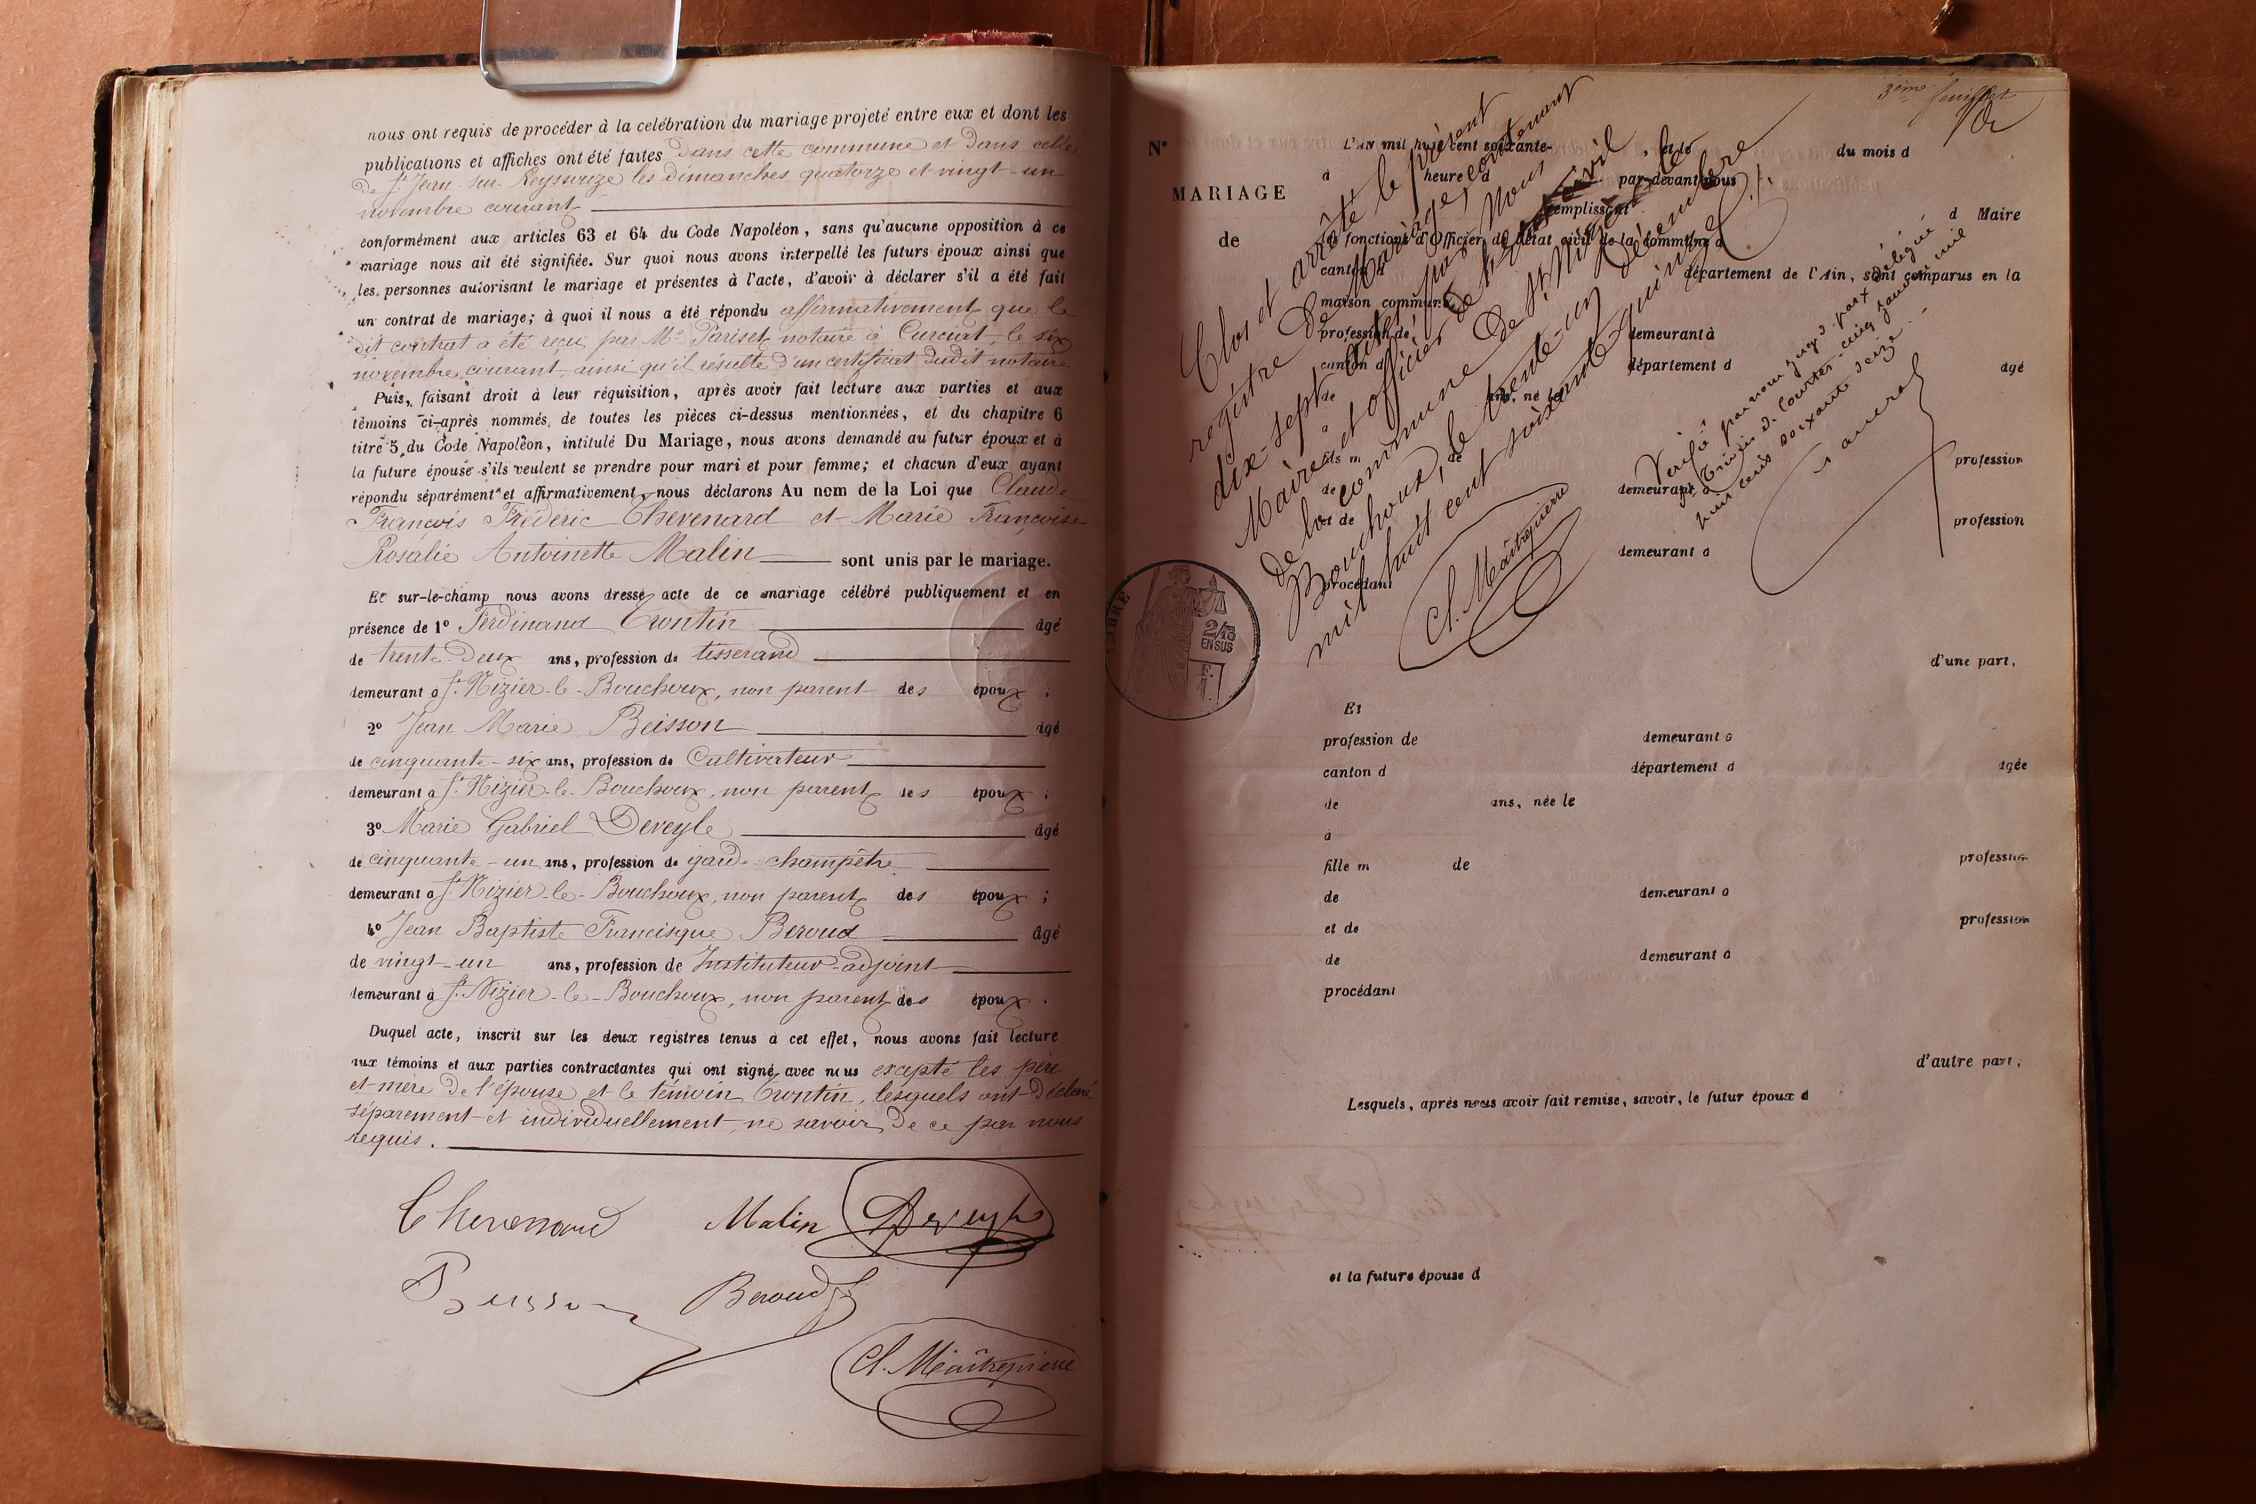 nous ont requis de procéder à la celébration du mariage projeté entre eux et dont les
publications et affiches ont été faites dans cette commune et dans celle
de St Jean-sur-Reyssouze les dimanches quatorze et vingt-un
novembre courant
conformément aux articles 63 et 64 du Code Napoléon, sans qu'aucune opposition à ce
mariage nous ait été signifiée. Sur quoi nous avons interpellé les futurs époux ainsi que
les personnes autorisant le mariage et présentes à l'acte, d'avoir à déclarer s'il a été fait
un contrat de mariage; à quoi il nous a été répondu affirmativement que le
dit contrat a été reçu par Me Pariset notaire à Curciat, le six
novembre courant, ainsi qu'il résulte d'un certificat dudit notaire
Puis, faisant droit à leur réquisition, après avoir fait lecture aux parties et aux
témoins ci-après nommés, de toutes les pièces ci-dessus mentionnées, et du chapitre 6
titre 5 du Code Napoléon, intitulé Du Mariage, nous avons demandé au futur époux et à
la future épouse s'ils veulent se prendre pour mari et pour femme; et chacun d'eux ayant
répondu séparément et affirmativement, nous déclarons Au nom de la Loi que Claude
François Fréderic Thevenard et Marie Françoise
Rosalie Antoinette Malin sont unis par le mariage.
Et sur-le-champ nous avons dressé acte de ce mariage célébré publiquement et en
présence de 1o Ferdinand Trontin âgé
de trente-deux ans, profession de tisserand
demeurant à St Nizier-le-Bouchoux, non parent des époux ;
2o Jean Marie Beisson âgé
de cinquante-six ans, profession de Cultivateur
demeurant à St Nizier-le-Bouchoux, non parent des époux ;
3o Marie Gabriel Deveyle âgé
de cinquante-un ans, profession de garde-champêtre
demeurant à St Nizier-le-Bouchoux, non parent des époux ;
4o Jean Baptiste Francisque Beroud âgé
de vingt-un ans, profession de Instituteur-adjoint
demeurant à St Nizier-le-Bouchoux, non parent des époux .
Duquel acte, inscrit sur les deux registres tenus à cet effet, nous avons fait lecture
aux témoins et aux parties contractantes qui ont signé avec nous excepté les père
et mère de l'épouse et le témoin Trontin, lesquels ont déclaré
séparement et individuellement ne savoir de ce par nous
requis.
Thevenard Malin Deveyle
Beisson Beroud
Cl. Maîtrepierre
3ème feuillet
No
MARIAGE
de
L'AN mil huit cent soixante- , et le du mois d
à heure d par-devant nous
remplissant d Maire
les fonctions d'Officier de l'état civil de la commune d
canton d département de l'Ain, sont comparus en la
maison commune
profession de demeurant à
canton d département d âgé
de ans, né le
à
fils m de profession
de demeurant à
et de profession
demeurant à
procédant
d'une part,
Clos et arrêté le présent
registre de Mariage, contenant
dix-sept par Nous
Maire et officier de l'état civil
de la commune de St Nizier le
Bouchoux, le trente-un décembre
mil huit cent soixante quinze.
Cl. Maîtrepierre
Vérifié par nous juge de paix délégué
de Courtes cinq janvier mil
huit cent soixante seize
2/10
EN SUS
Et
profession de demeurant à
canton d département d âgée
de ans, née le
à
fille m de profession
de demeurant à
et de profession
de demeurant à
procédant
d'autre part,
Lesquels, après nous avoir fait remise, savoir, le futur époux d
et la future épouse d